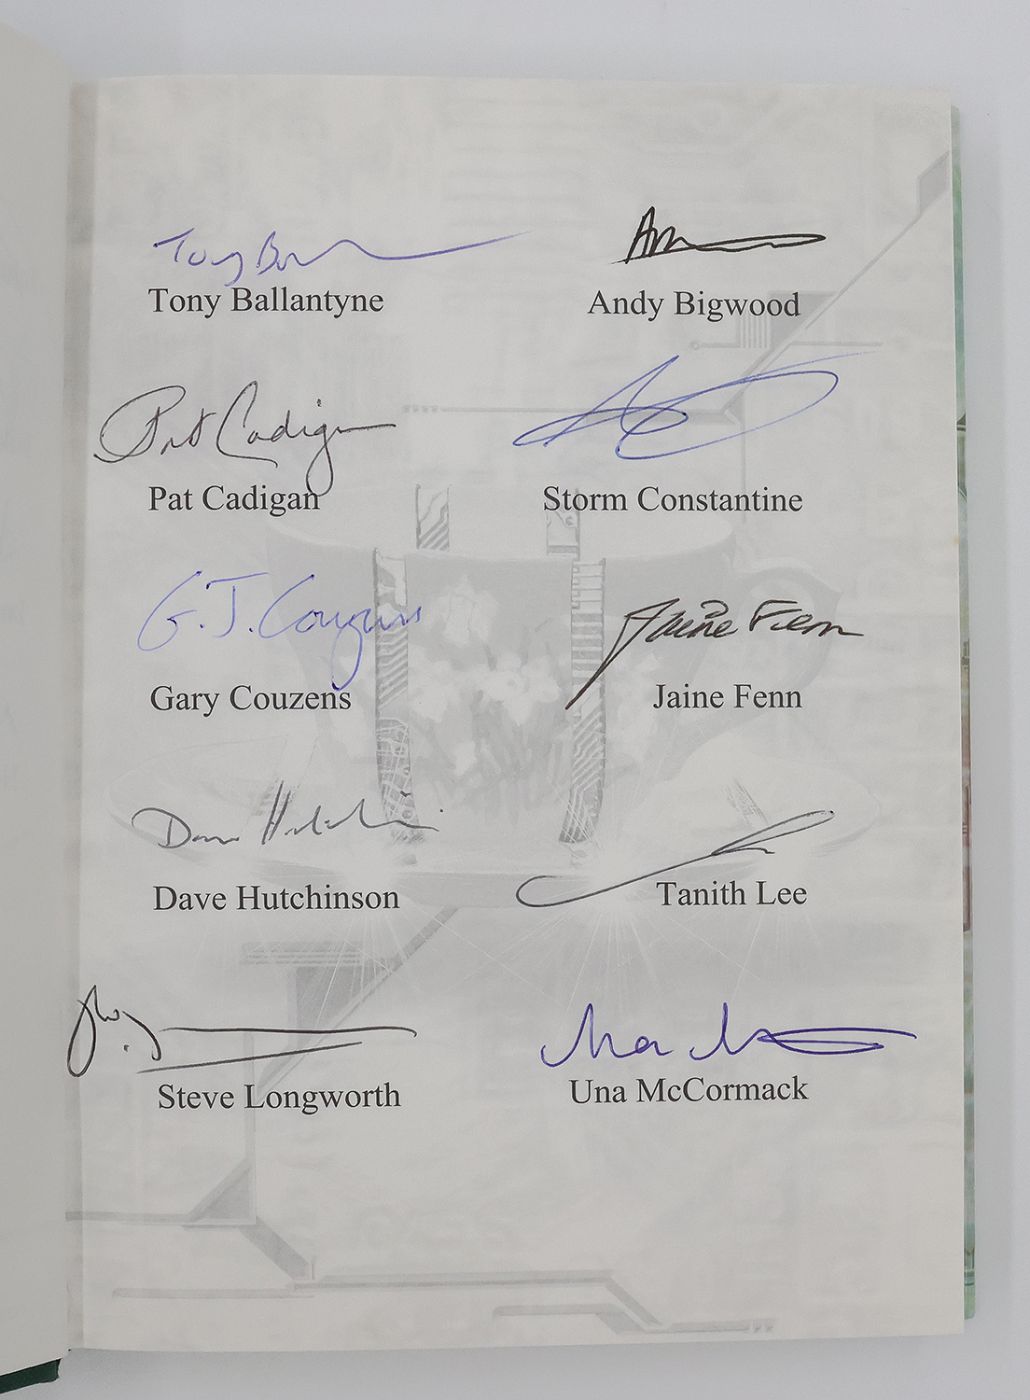 Tony B
Tony Ballantyne
Andy Bigwood
Pat Cadigan
Pat Cadigan
Storm Constantine
G.J. Couzens
Gary Couzens
Jaine Fenn
Jaine Fenn
Dave Hutchinson
Dave Hutchinson
Tanith Lee
Steve Longworth
Una Mc
Una McCormack